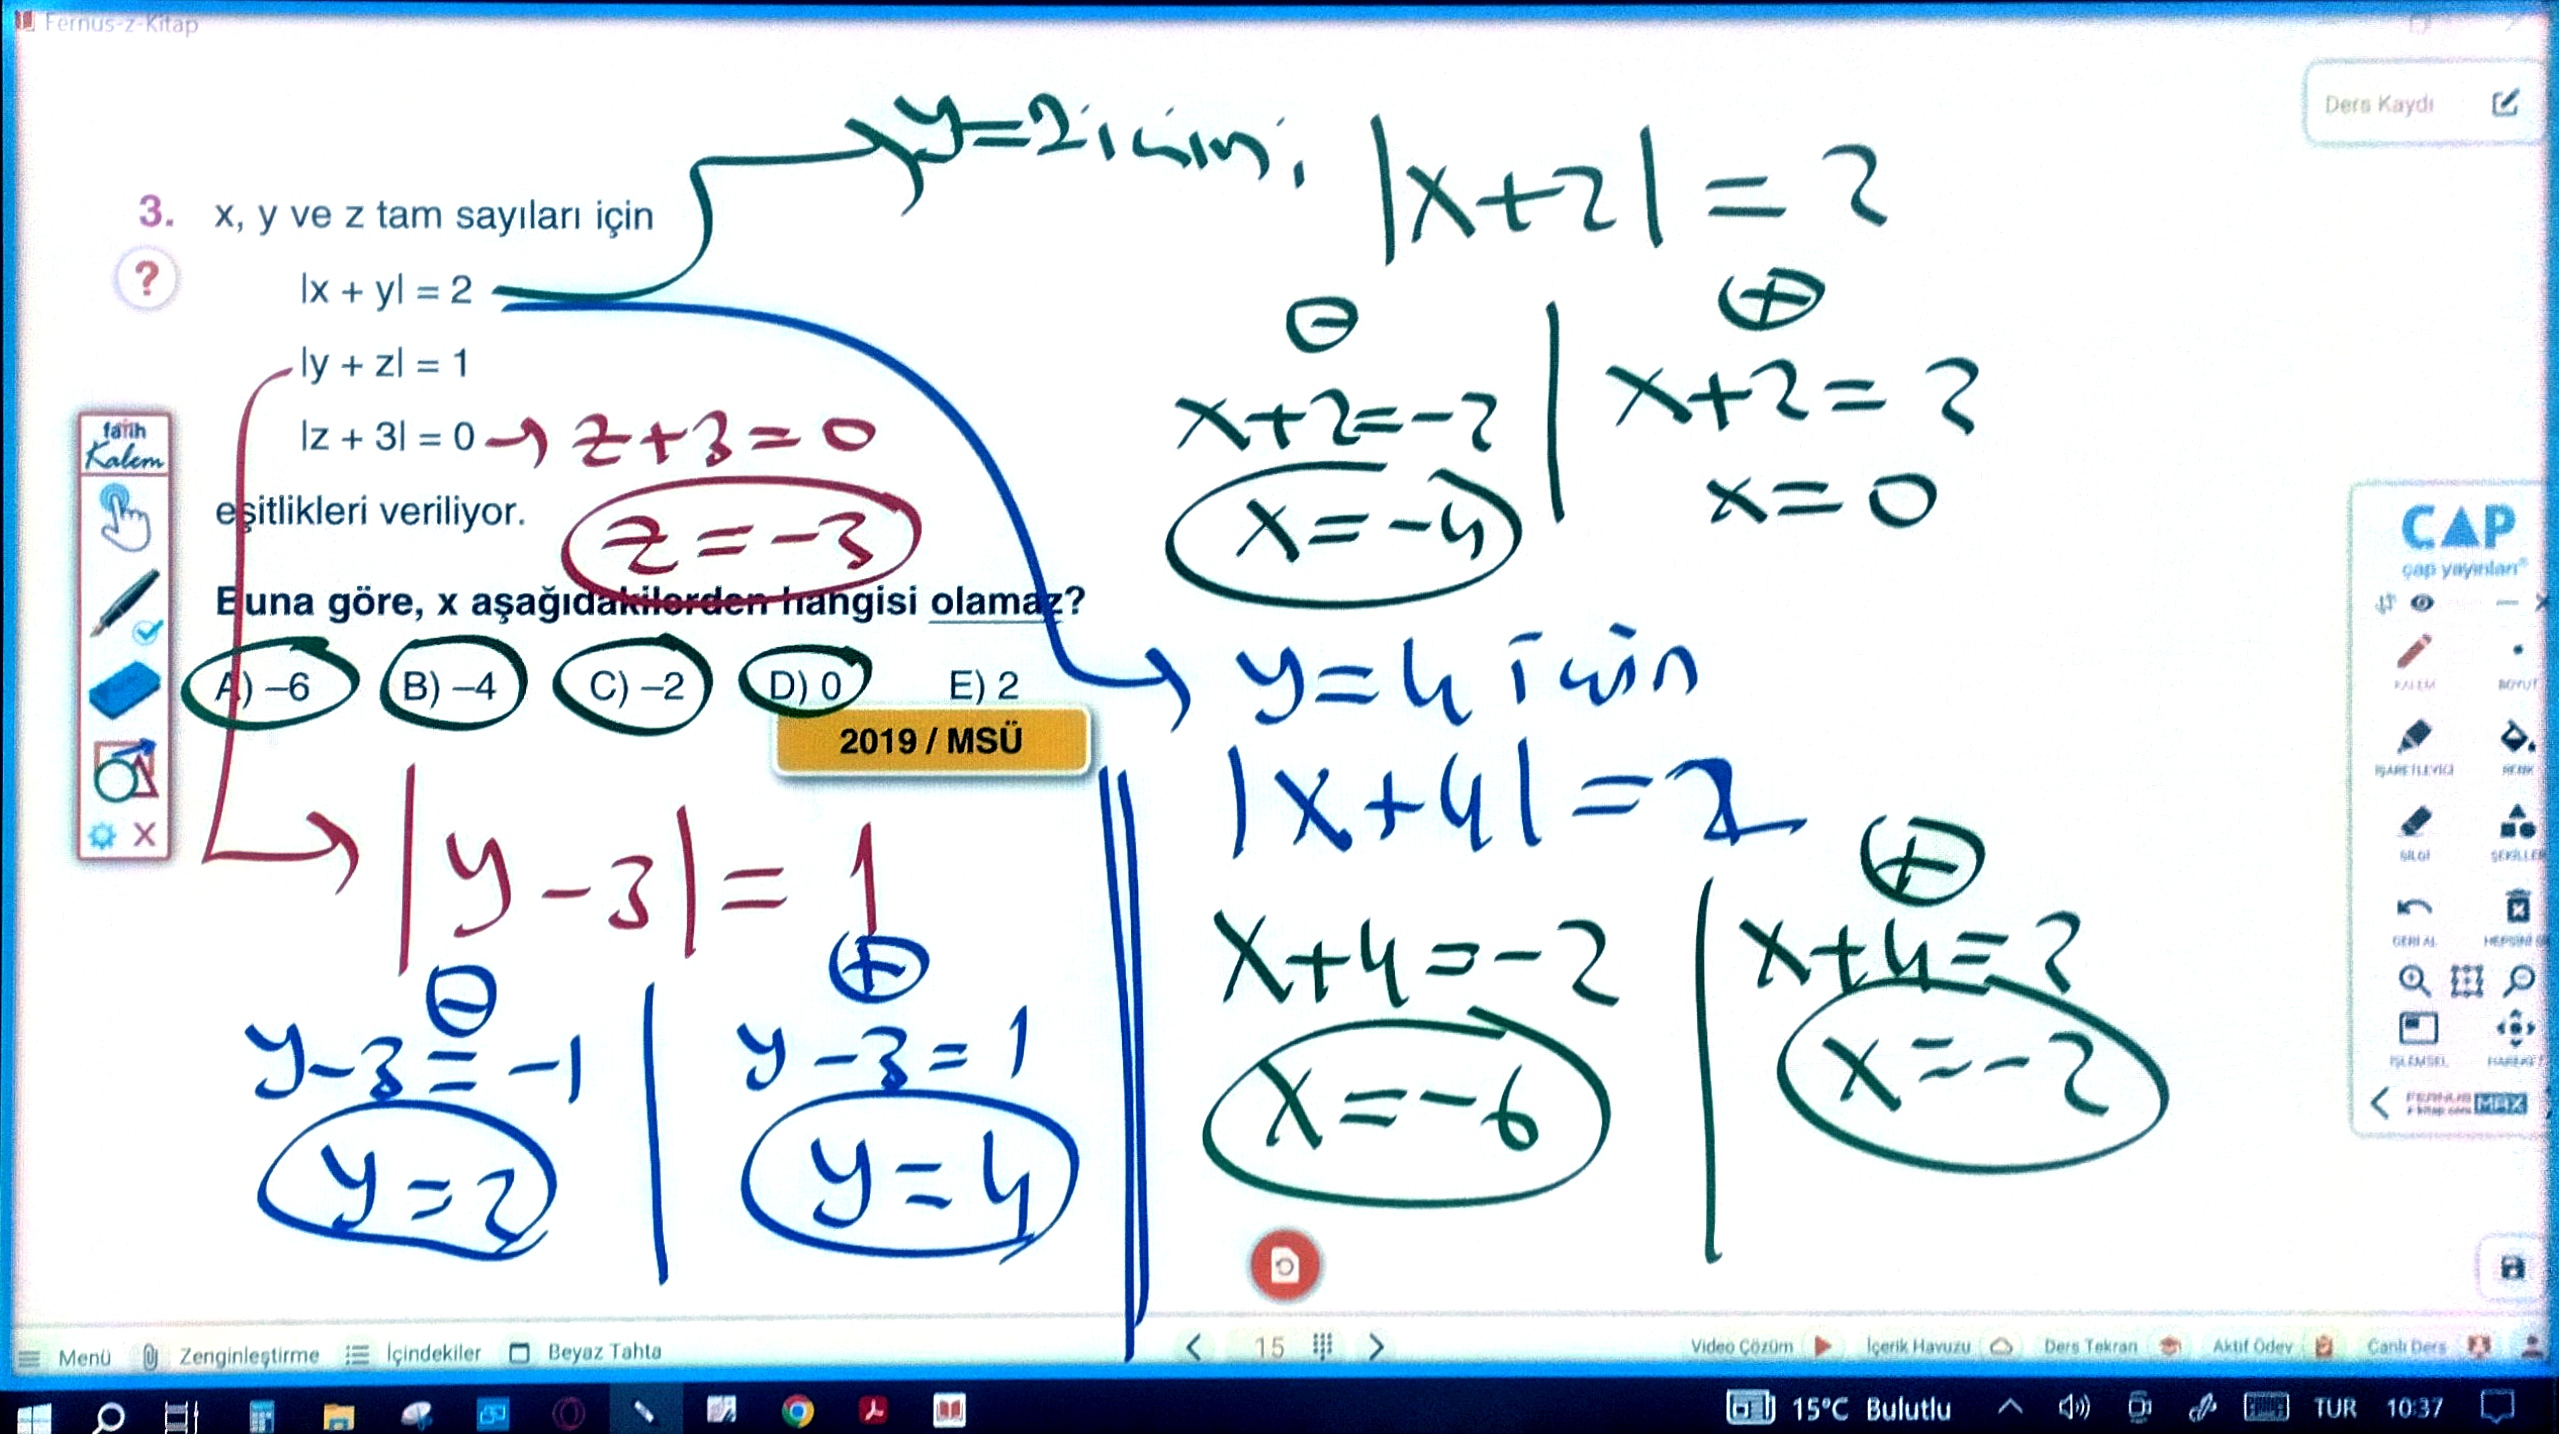 Fernus-z-Kitap
Ders Kaydı
3. x, y ve z tam sayıları için
|x + y| = 2
|y + z| = 1
|z + 3| = 0 → z+3=0
z=-3
eşitlikleri veriliyor.
Buna göre, x aşağıdakilerden hangisi olamaz?
A) –6 B) –4 C) –2 D) 0 E) 2
2019 / MSÜ
fatih
Kalem
|y-3| = 1
⊖ ⊕
y-3=-1 y-3=1
y=2 y=4
y=2 için,
|x+2| = 2
⊖ ⊕
x+2=-2 x+2=2
x=-4 x=0
y=4 için
|x+4|=2
⊕
x+4=-2 x+4=2
x=-6 x=-2
ÇAP
çap yayınları
KALEM BOYUT
İŞARETLEYİCİ RENK
SİLGİ ŞEKİLLER
GERİ AL
İŞLEMSEL HAREKET
FERNUS MAX
Menü Zenginleştirme İçindekiler Beyaz Tahta
15
Video Çözüm İçerik Havuzu Ders Tekrarı Aktif Ödev Canlı Ders
15°C Bulutlu TUR 10:37